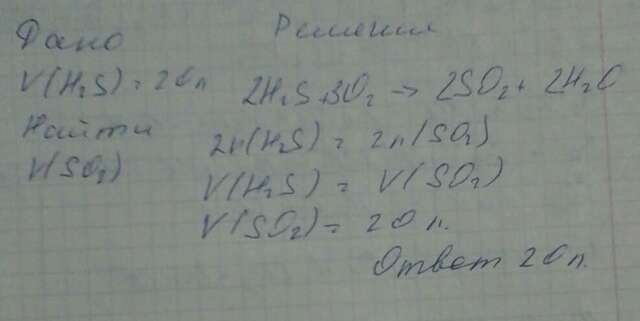 Дано
V(H₂S) = 20л
Найти
V(SO₂)
Решение
2H₂S+3O₂ → 2SO₂ + 2H₂O
2n(H₂S) = 2n(SO₂)
V(H₂S) = V(SO₂)
V(SO₂) = 20 л.
Ответ 20л.